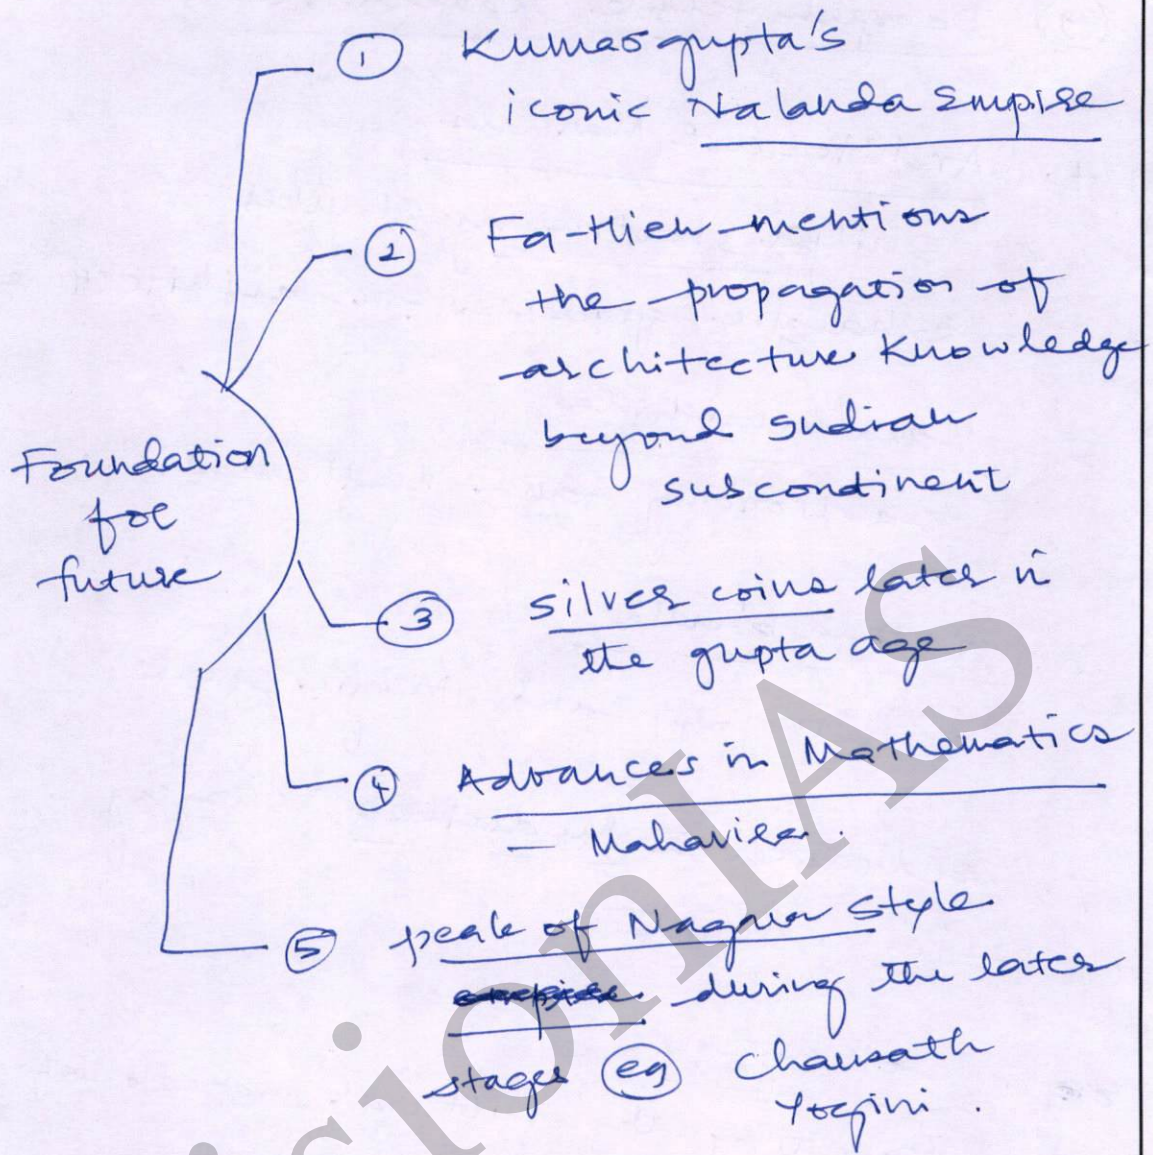 ① Kumargupta's
iconic Nalanda Empire
② Fa-Hien mentions
the propagation of
architecture Knowledge
beyond Indian
subcondinent
Foundation
for
future
③ silver coins later in
the gupta age
④ Advances in Mathematics
= Mahavira.
⑤ peak of Nagara style
during the later
stages eg Chausath
Yogini.
VisionIAS